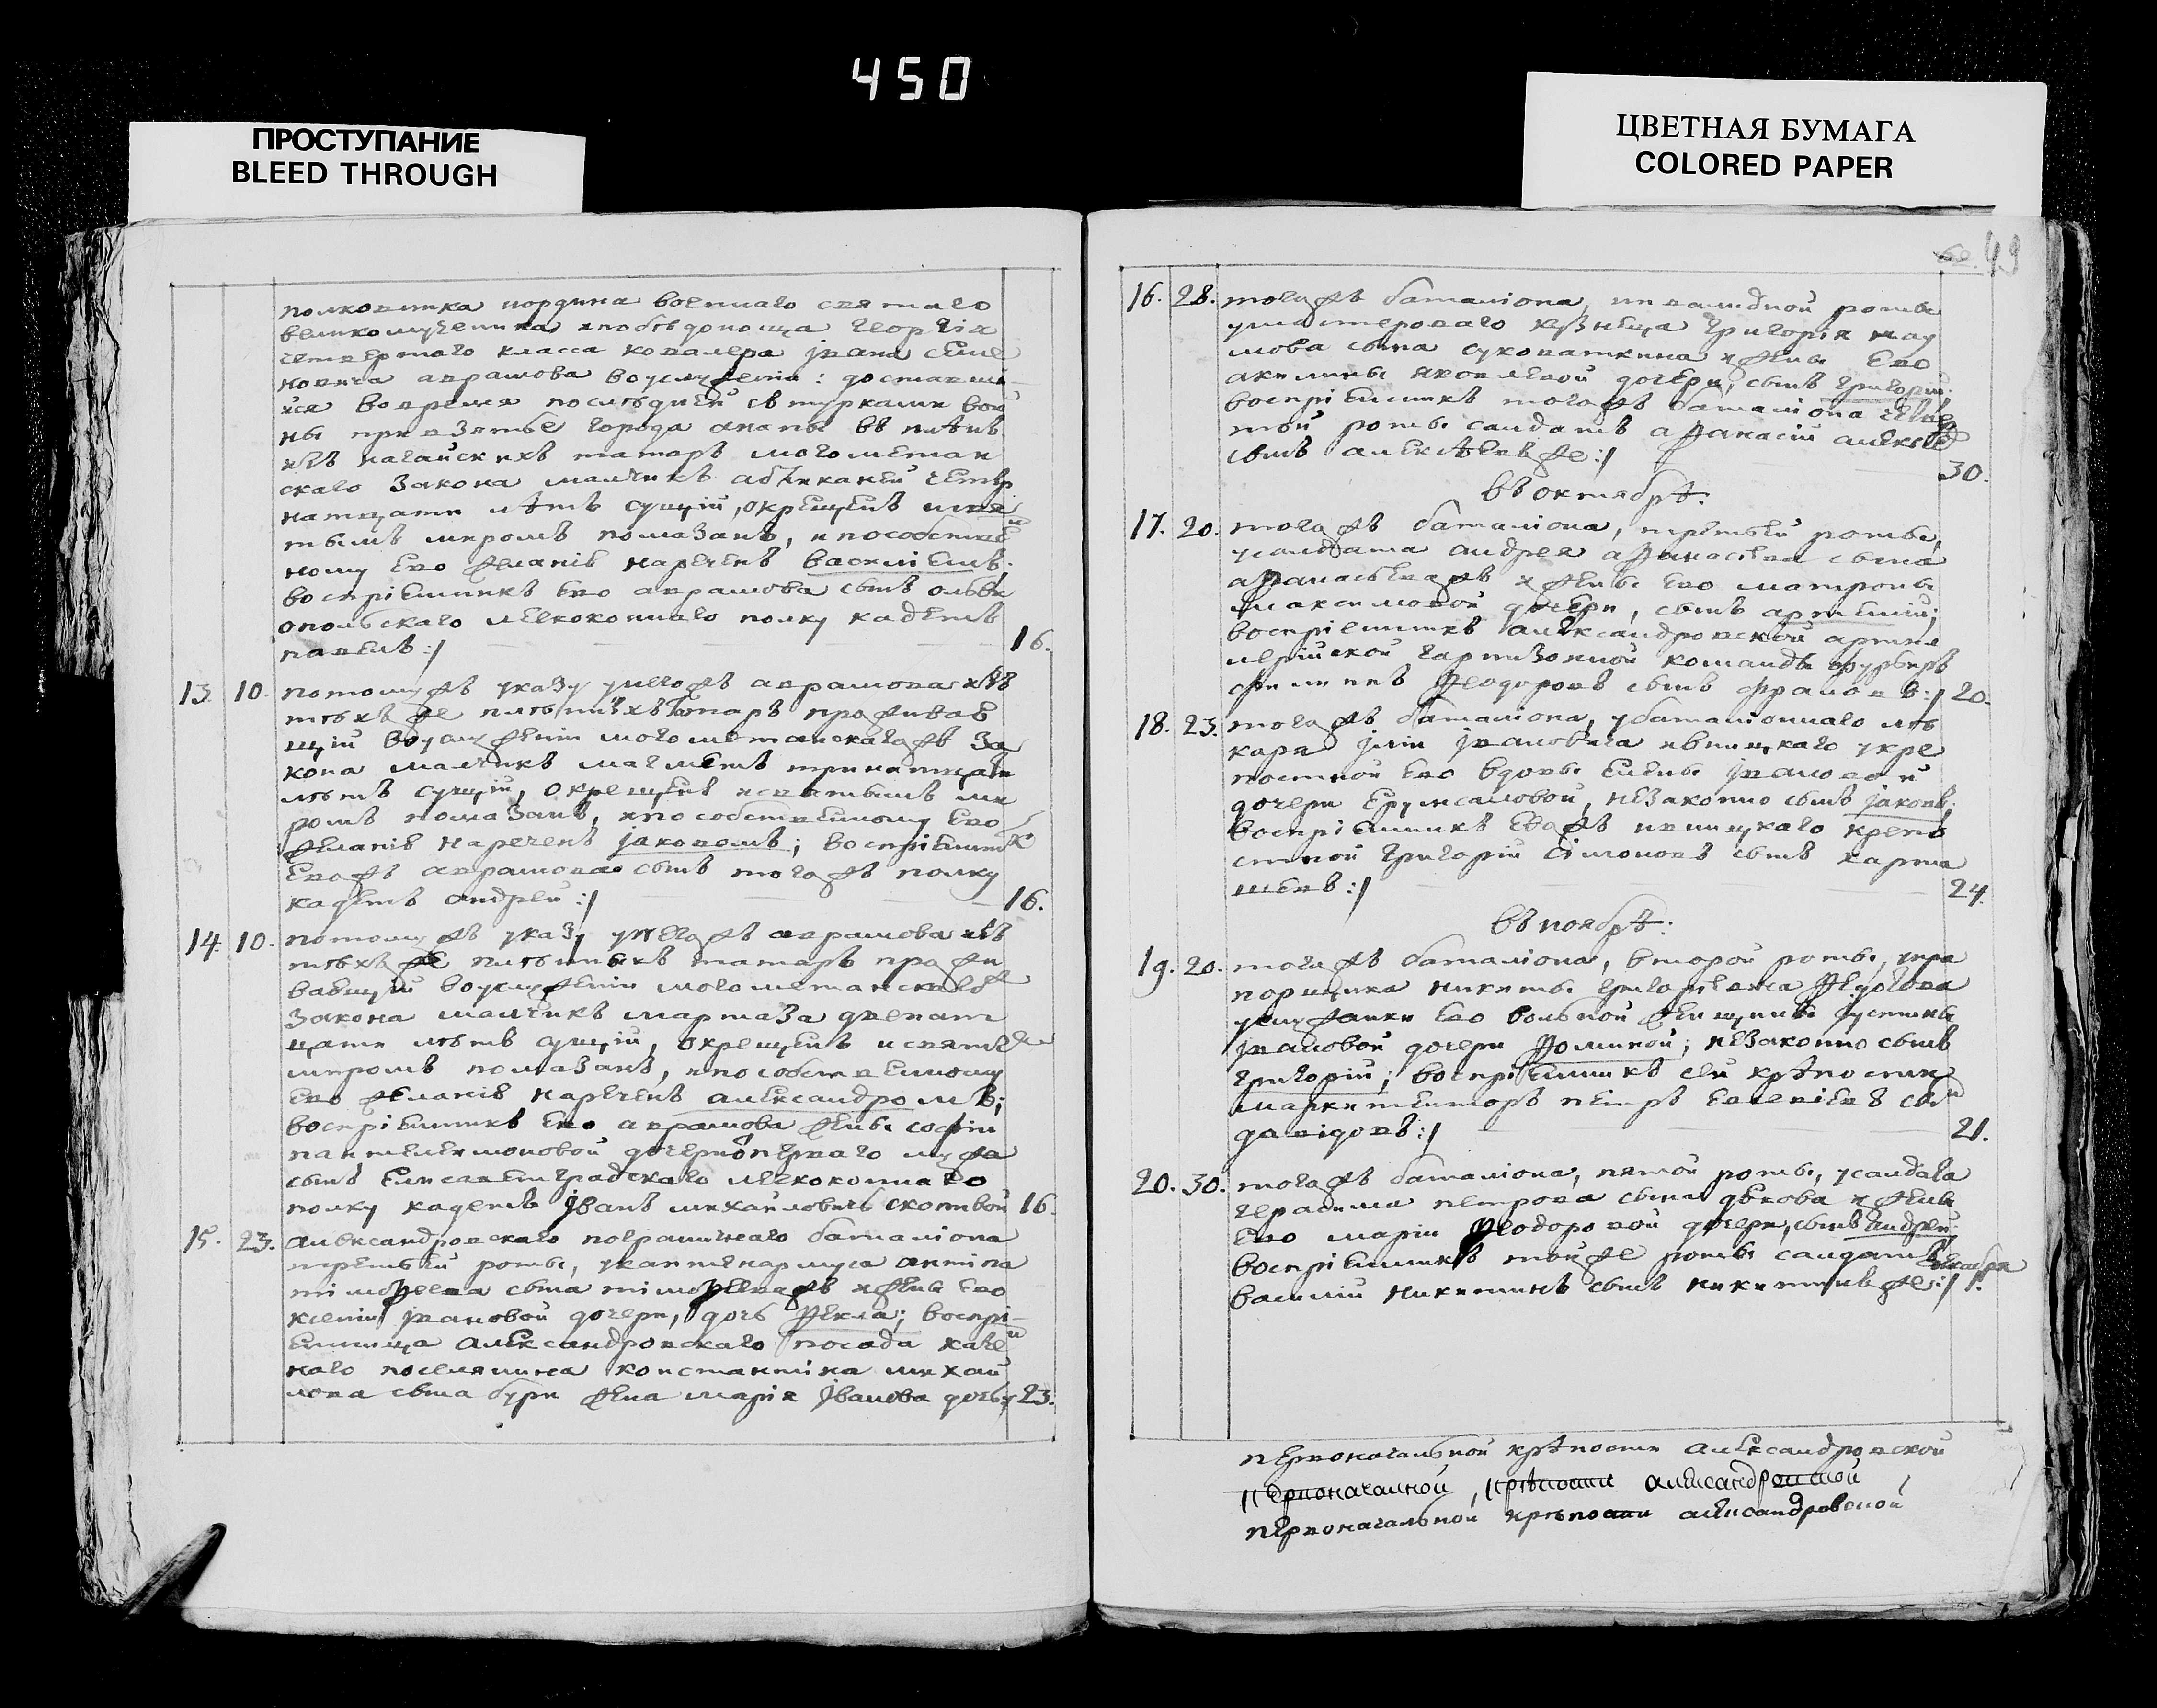 450
ПРОСТУПАНИЕ
BLEED THROUGH
ЦВЕТНАЯ БУМАГА
COLORED PAPER
полковника иордина военнаго святаго
великомученика и побѣдоносца георгія
четвертаго класса ковалера јвана симе
новича аврамова воуслуженіи: доставші
йся вовремя послѣдней съ турками вой
ны при взятье города анапы въ плѣнъ
изъ нагайскихъ татаръ могометан
скаго закона мальчикъ четыр
натцати лѣтъ сущій, окрещенъ
тымъ миромъ помазанъ, и пособствен
ному ево желанію нареченъ василіемъ;
воспріемникъ ево аврамова сынъ ольви
опольскаго легкоконнаго полку кадетъ
павелъ:/ 16.
13. 10. потомужъ указу унегожъ аврамова изъ
тѣхъ же плѣнныхъ татаръ проживав
щій воуслуженіи могометанскагожъ за
кона мальчикъ магметъ тринатцати
лѣтъ сущій, окрещенъ исвятымъ ми
ромъ помазанъ, и пособственному ево
желанію нареченъ јаковомъ; воспріемникъ
евожъ аврамова сынъ тогожъ полку
кадетъ андрей:/ 16.
14. 10. потомужъ указу унегожъ аврамова изъ
тѣхъ же плѣнныхъ татаръ прожи
вавщій воуслуженіи могометанскаго же
закона мальчикъ мартаза двенат
цати лѣтъ сущій, окрещенъ исвятымъ
миромъ помазанъ, и пособственному
ево желанію нареченъ александромъ;
воспріемникъ ево аврамова жены софіи
пантелеимоновой дочери перваго мужа
сынъ елисаветградскаго легкоконнаго
полку кадетъ јванъ михайловичъ скотивой 16.
15. 23. александровскаго пограничнаго баталіона
третьей роты, укаптенармуса антипа
тімоѳеева сына тімоѳееважъ и жены ево
ксеніи јвановой дочери, дочь ѳекла; воспрі-
емница александровскаго посада казен
наго поселянина константіна михай
лова сына бури жена марія јванова дочь:/ 23.
49
16. 28. тогажъ баталіона, инвалидной роты
умастероваго кузнеца григорія нау
мова сына суховаткина и жены ево
акилины яковлевой дочери, сынъ григорій
воспріемникъ тогажъ баталіона
той роты салдатъ аѳанасій алексѣевъ
сынъ алексѣевъ же:/ 30.
въ октябрѣ:
17. 20. тогажъ баталіона, третьей роты,
усалдата андрея аѳанасьева сына
аѳанасьеважъ и жены ево матроны
максимовой дочери, сынъ артемій;
воспріемникъ александровской артил
лерійской гарнизонной команды фурьеръ
филиппъ ѳеодоровъ сынъ фраловъ:/ 20.
18. 23. тогажъ баталіона, убаталіоннаго лѣ
каря јліи јвановича ивницкаго укре
постной ево вдовы елены јвановой
дочери ерусисаловой, незаконно сынъ јаковъ;
воспріемникъ евожъ ивницкаго крепо
стной григорій сімоновъ сынъ карпа
шевъ:/ 24.
въ ноябрѣ:
19. 20. тогажъ баталіона, второй роты, упра
порщика никиты григорьевича ѳедотова
услужанки ево вольной женщины јустины
јвановой дочери ѳоминой; незаконно сынъ
григорій; воспріемникъ сей крѣпости
маркитенторъ петръ евсевіевъ сынъ
давідовъ:/ 21.
20. 30. тогажъ баталіона, пятой роты, усалдата
герасима петрова сына дѣкова и жены
ево маріи ѳеодоровой дочери, сынъ андрей
воспріемникъ тойже роты салдатъ декабря
василій никитинъ сынъ никитинъ же:/ 1.
первоначальной крѣпости александровской
первоначалной, крѣпости александровской
первоначальной крѣпости александровской